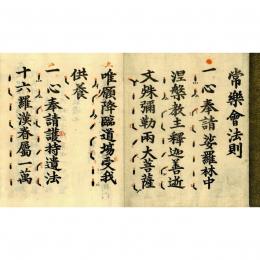 常樂會法則
一心奉請娑羅林中
涅槃教主釋迦善逝
文殊彌勒兩大菩薩
唯願降臨道場受我
供養
一心奉請護持遺法
十六羅漢眷屬一萬